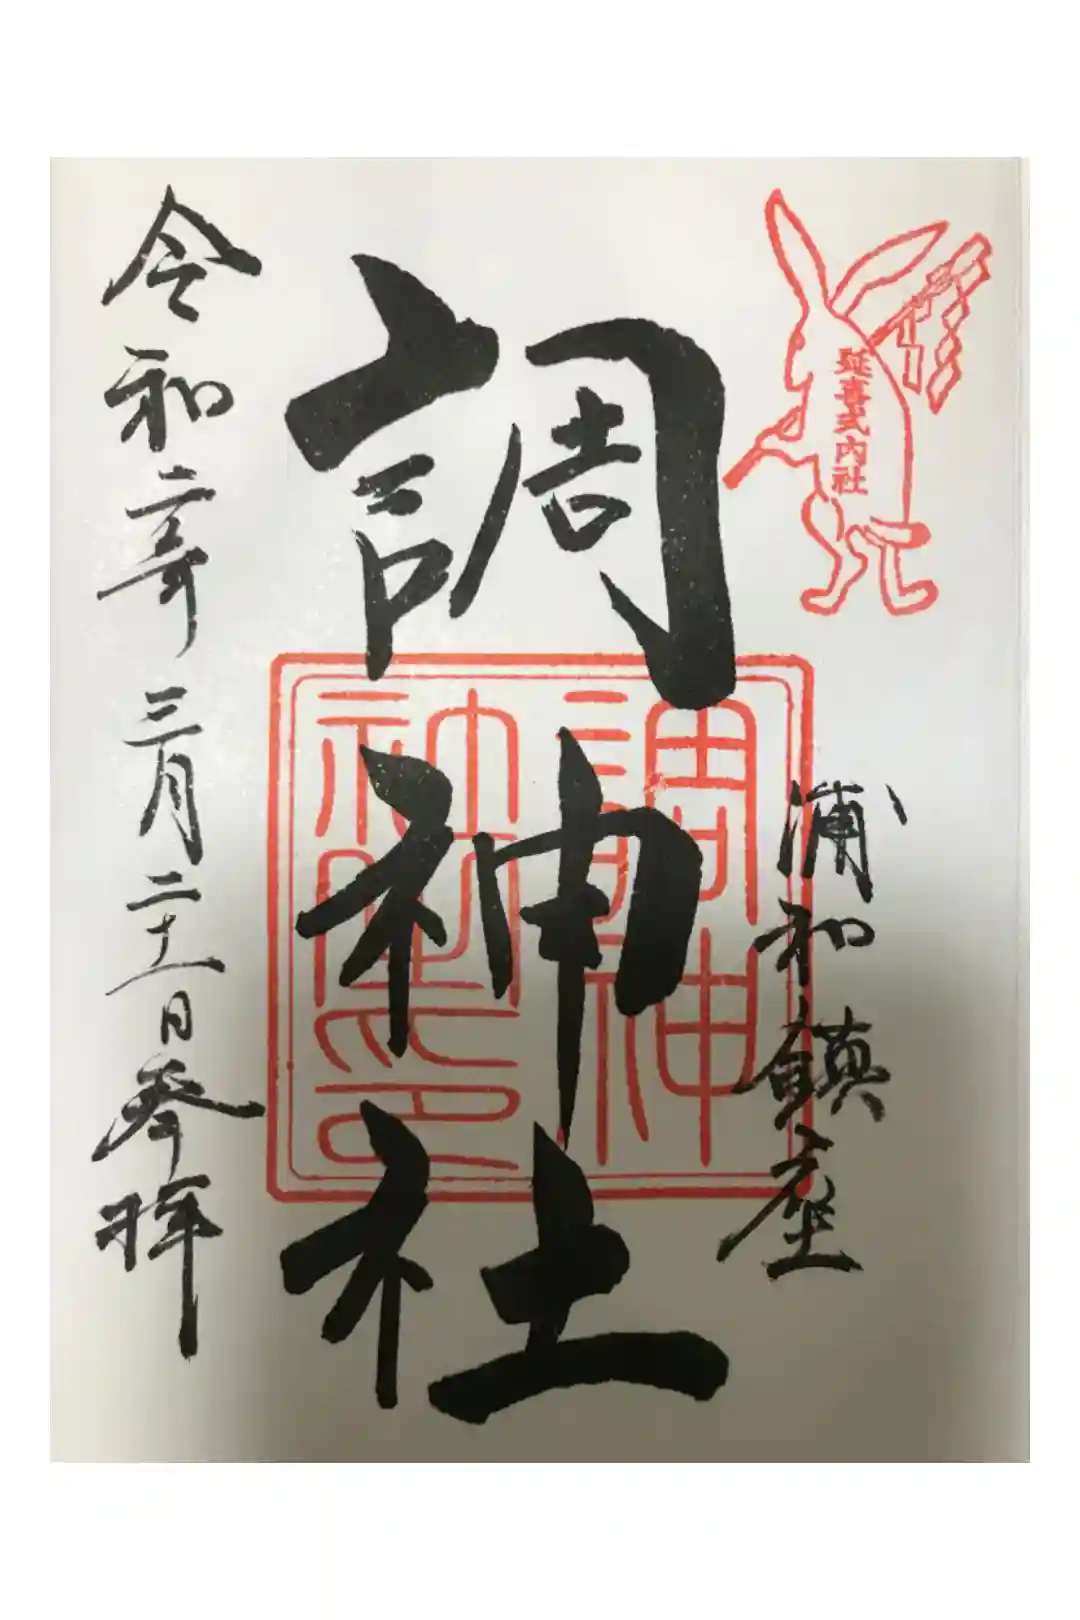 延喜式内社
浦和鎮座
調神社
調神
社之印
令和二年三月二十一日参拝